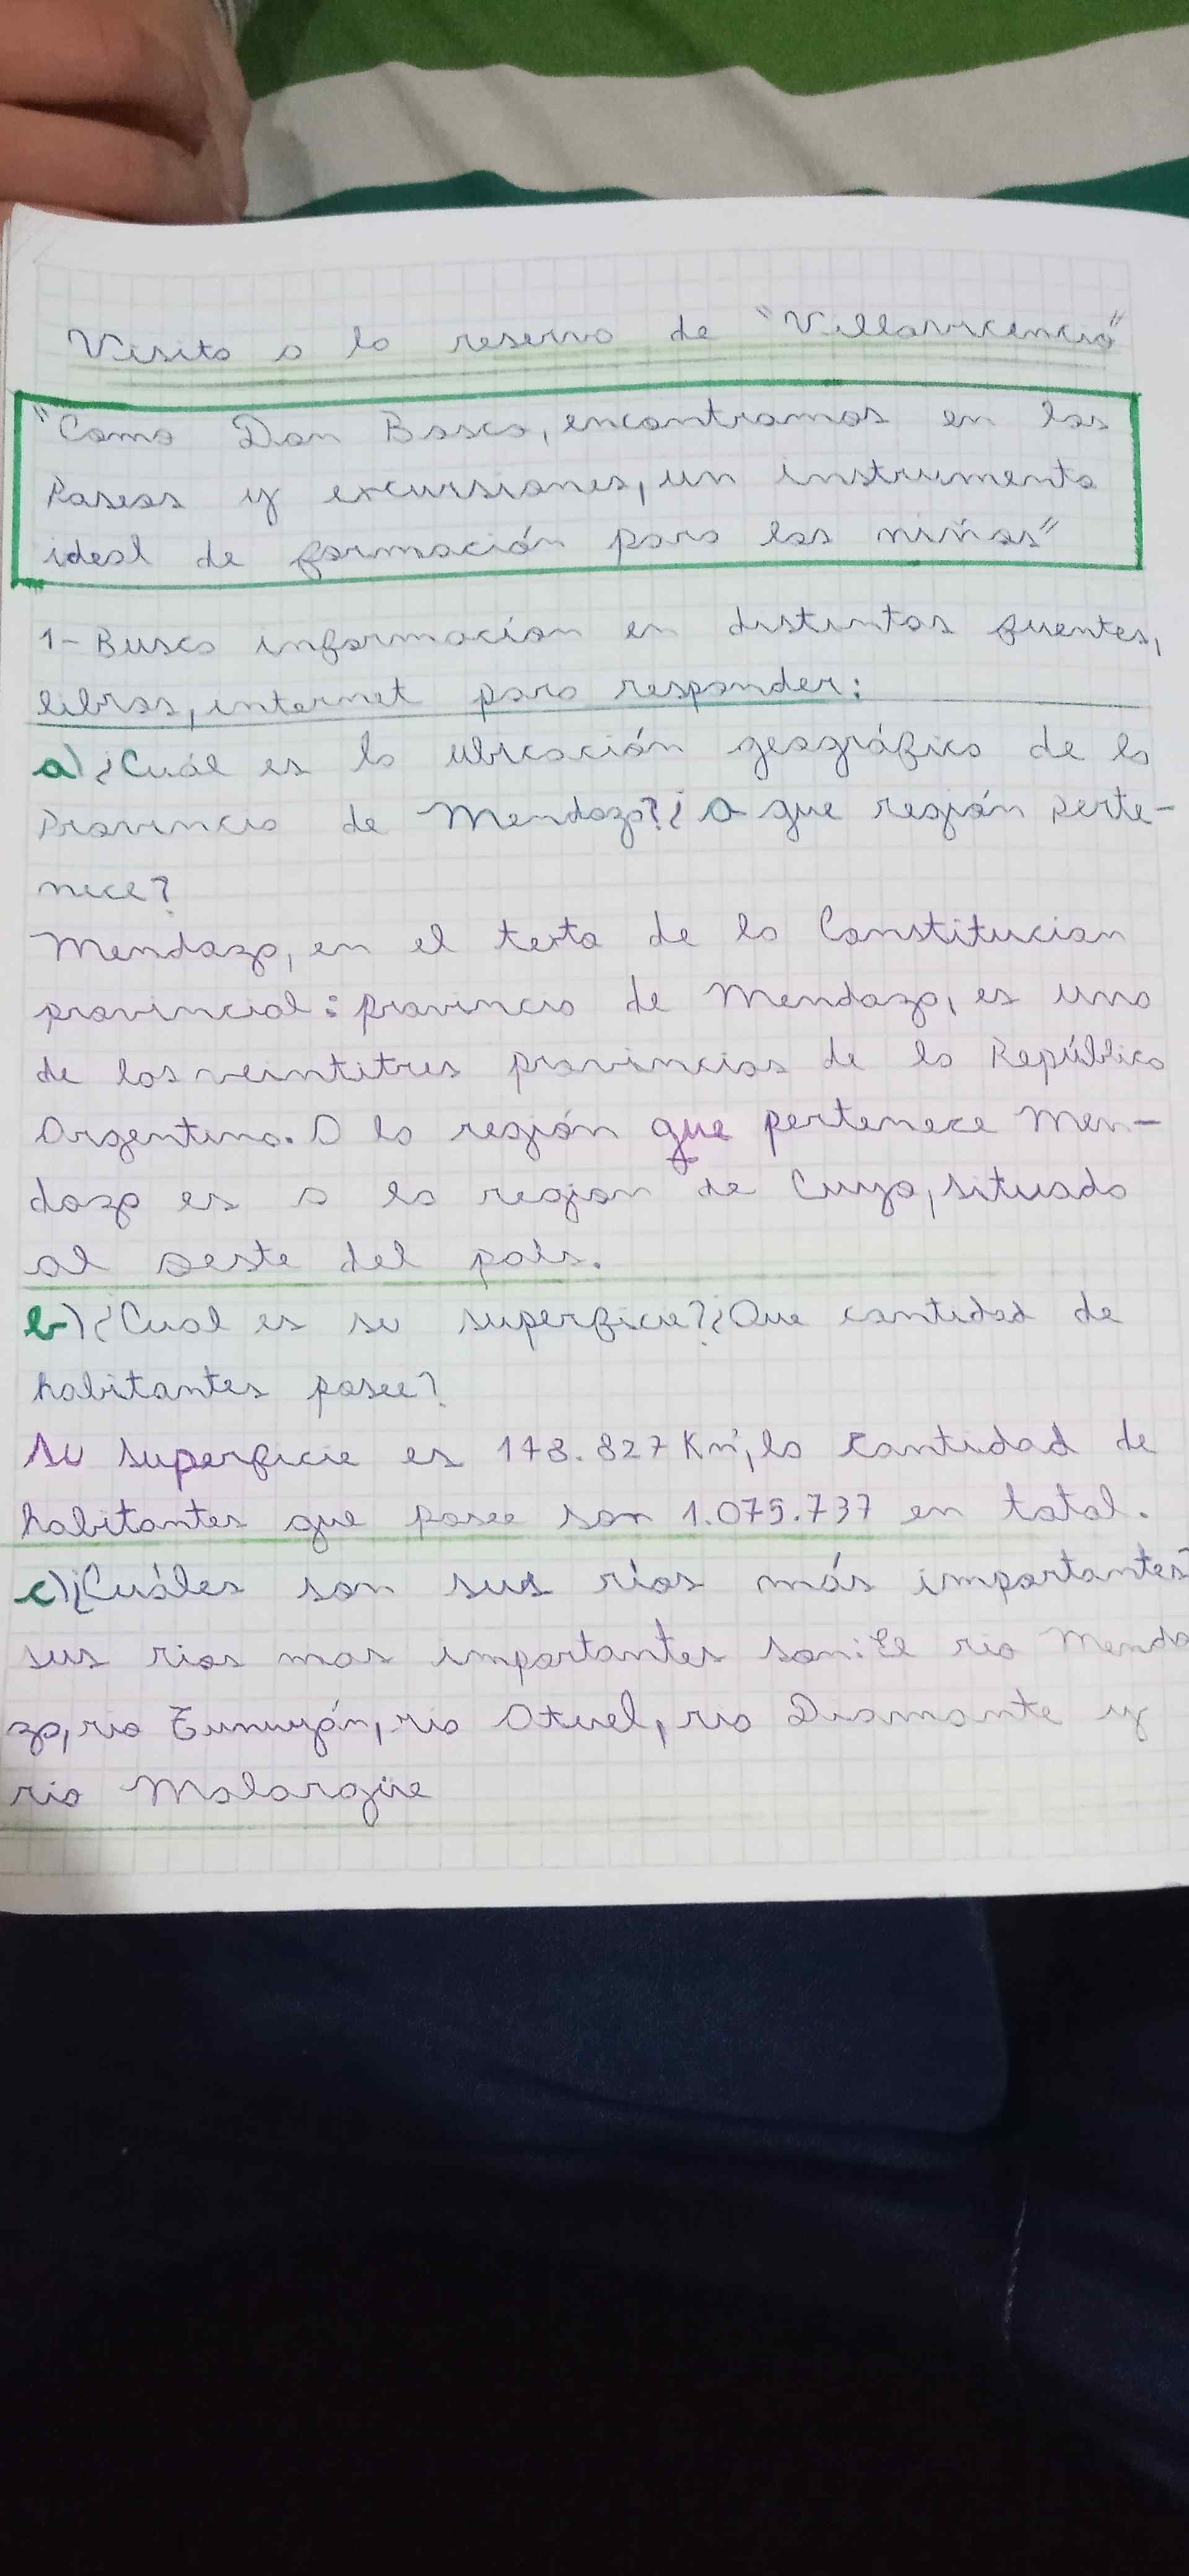 Visita a la reserva de "Villavicencio"
"Como Don Bosco, encontramos en los
Paseos y excursiones, un instrumento
ideal de formación para los niños"
1-Busco información en distintas fuentes,
libros, internet para responder:
a)¿Cuál es la ubicación geográfica de la
Provincia de Mendoza?¿A que región perte-
nece?
Mendoza, en el texto de la Constitucion
provincial: provincia de Mendoza, es una
de las veintitres provincias de la República
Argentina. A la región que pertenece Men-
doza es a la region de Cuyo, situado
al oeste del país.
b)¿Cual es su superficie?¿Que cantidad de
habitantes posee?
Su superficie es 148.827 Km², la cantidad de
habitantes que posee son 1.079.737 en total.
c)¿Cuáles son sus ríos más importantes?
sus rios mas importantes son: El rio Mendo
za, rio Tunuyán, rio Atuel, rio Diamante y
rio Malargüe